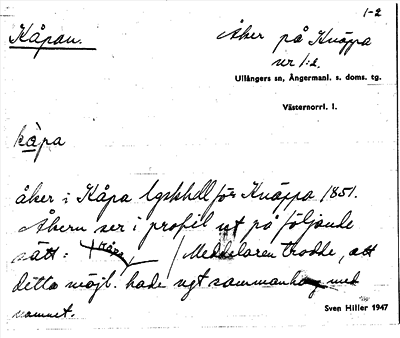 1-2
Kåpan.
Åker på Knäppa
nr 1:2.
Ullångers sn, Ångermanl. s. doms. tg.
Västernorrl. l.
kåpa
åker i Kåpa lgskhll för Knäppa 1851.
Åkern ser i profil ut på följande
sätt: Kåpa / Meddelaren trodde, att
detta möjl. hade ngt sammanhang med
namnet.
Sven Hiller 1947